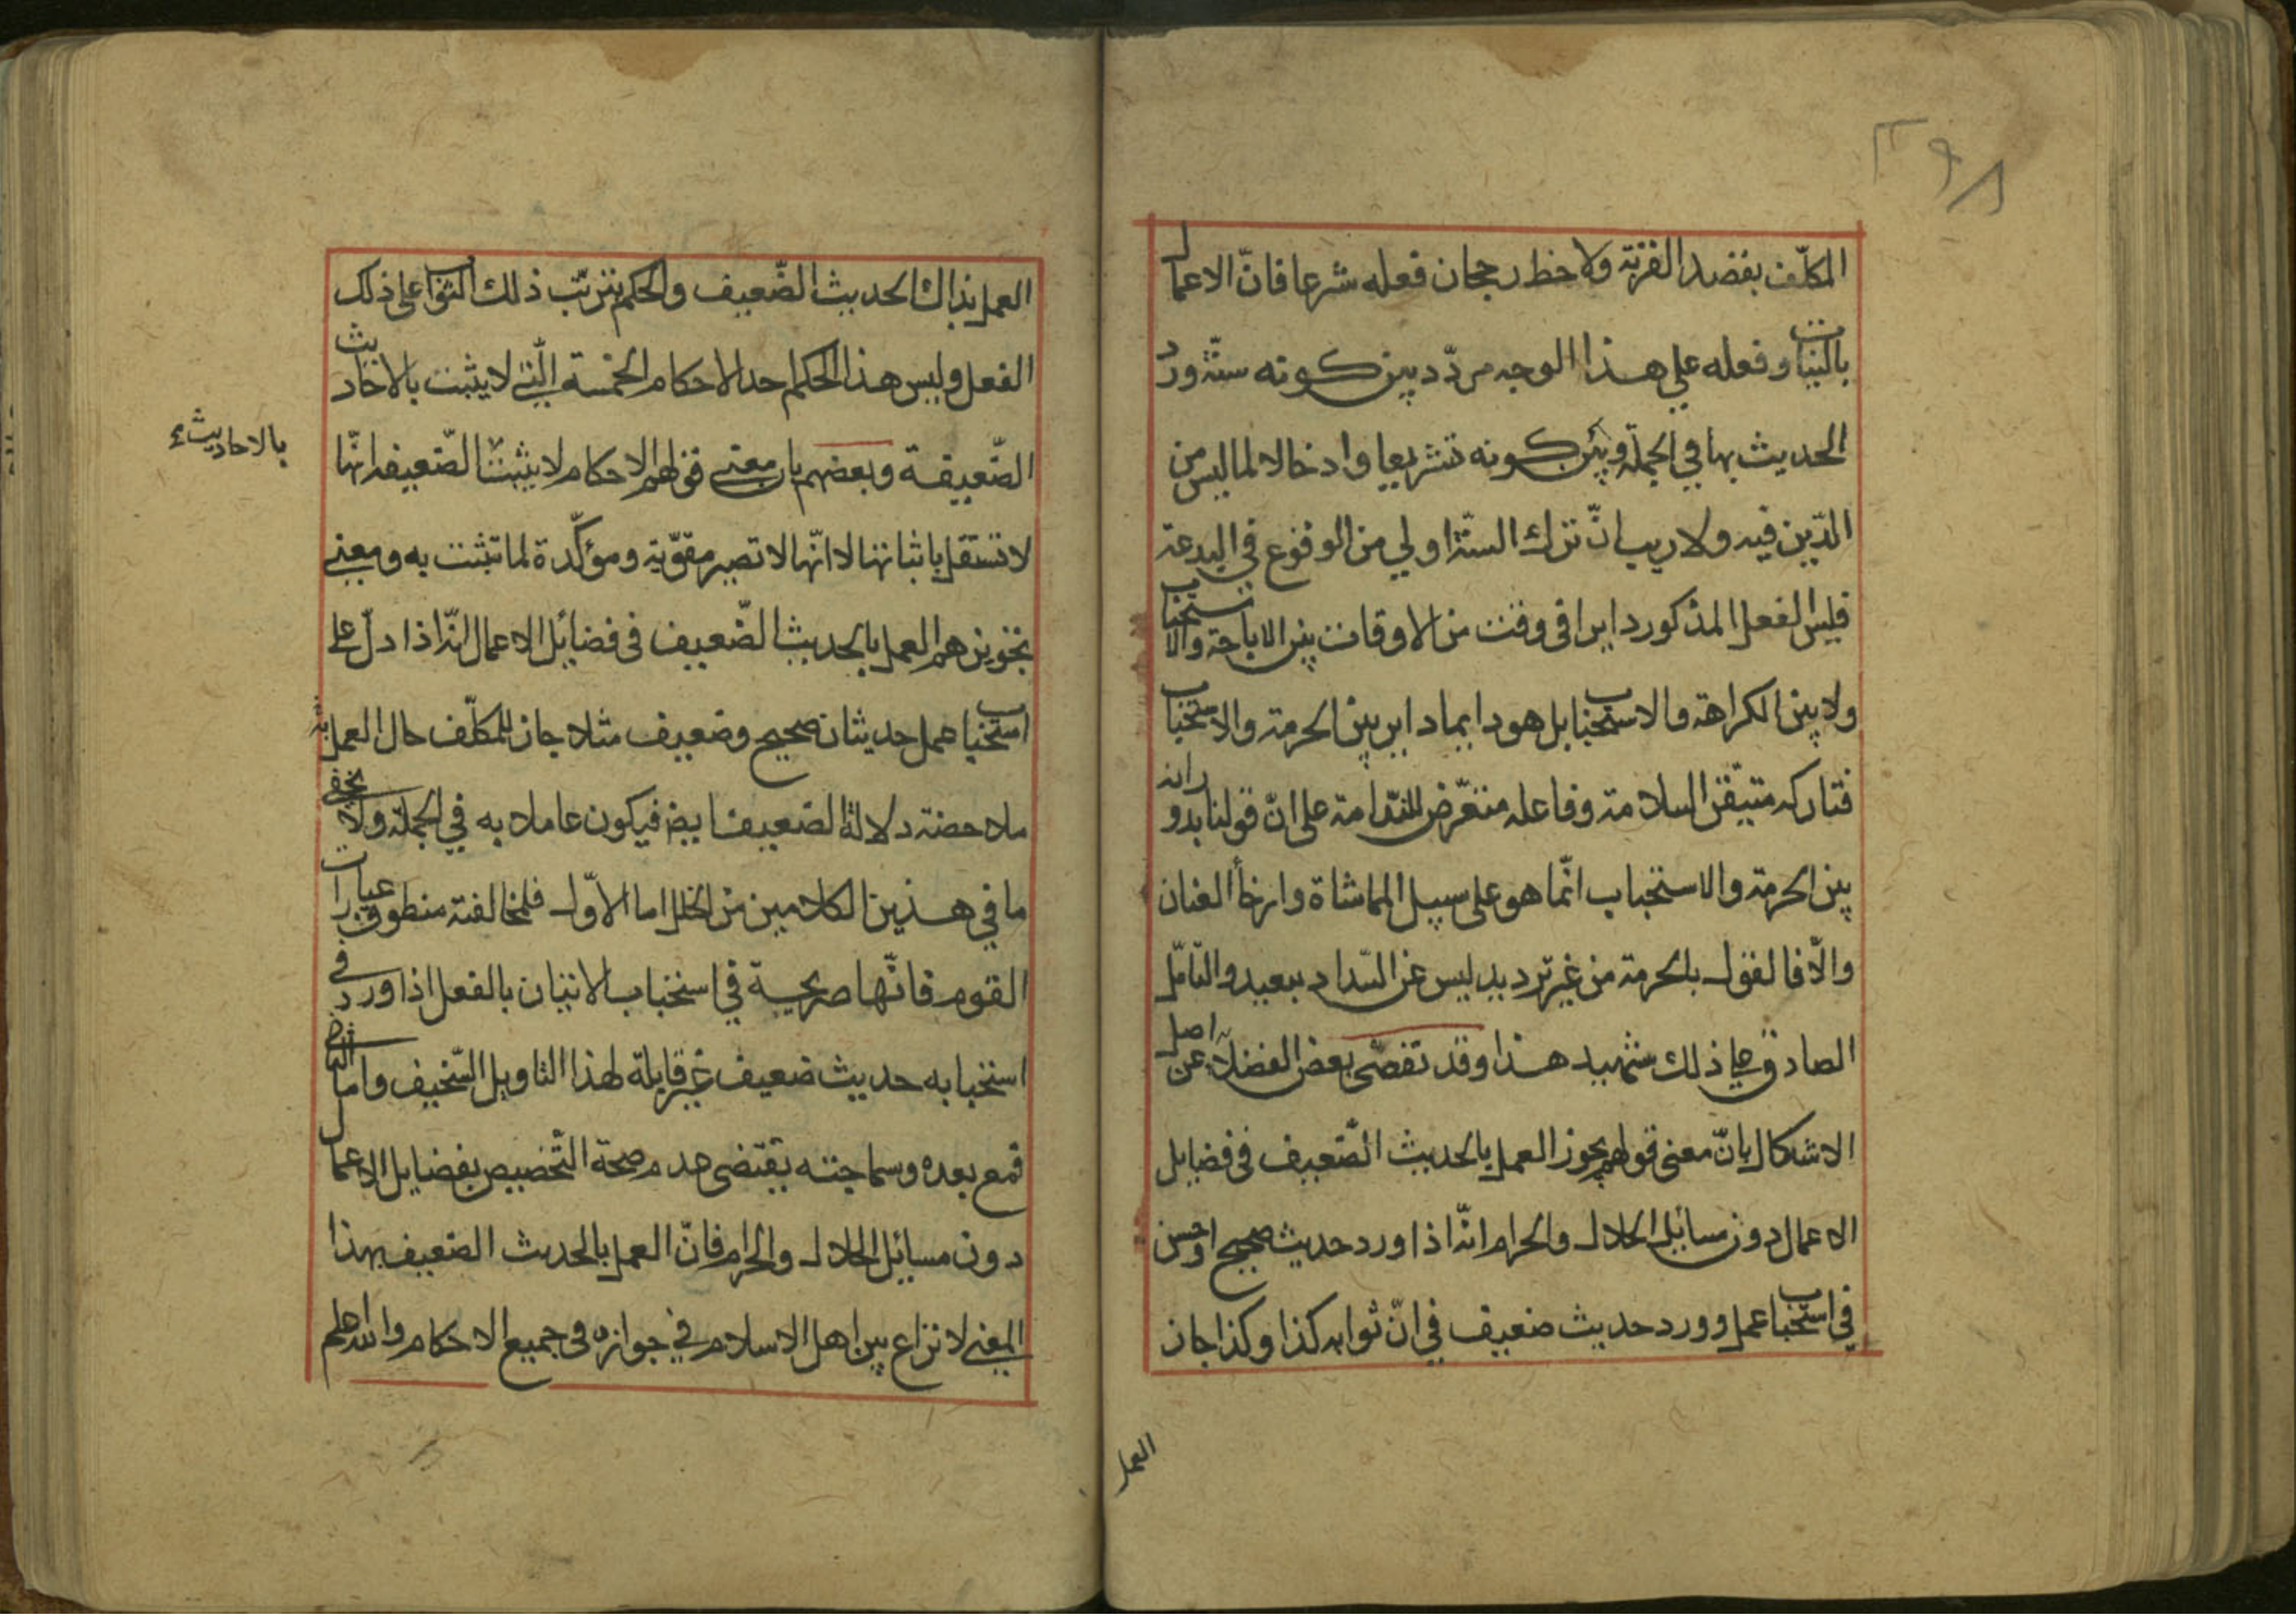 المكلّف بقصد القربة ولاحظ رجحان فعله شرعا فانّ الاعمال
بالنيات وفعله على هذا الوجه مردّد بين كونه سنّة ورد
الحديث بها في الجملة وبين كونه تشريعا وادخالا لما ليس من
الدّين فيه ولا ريب انّ ترك السنّة اولى من الوقوع في البدعة
فليس الفعل المذكور دايرا في وقت من الاوقات بين الاباحة والاستحباب
ولا بين الكراهة والاستحباب بل هو دايما داير بين الحرمة والاستحباب
فتاركه متيقّن السلامة وفاعله متعرّض للندامة على انّ قولنا بدورانه
بين الحرمة والاستحباب انّما هو على سبيل المماشاة وارخاء العنان
والّا فالقول بالحرمة من غير ترديد ليس عن السّداد ببعيد والتامّل
الصادق على ذلك شهيد هذا وقد تفصّى بعض الفضلاء عن اصل
الاشكال بانّ معنى قولهم يجوز العمل بالحديث الضّعيف في فضايل
الاعمال دون مسائل الحلال والحرام انّه اذا ورد حديث صحيح او حسن
في استحباب عمل وورد حديث ضعيف في انّ ثوابه كذا وكذا جاز
العمل
العمل بذاك الحديث الضّعيف والحكم بترتّب ذلك الثواب على ذلك
الفعل وليس هذا الحكم احد الاحكام الخمسة الّتي لا يثبت بالاحاديث
الضّعيفة وبعضهم بان معنى قولهم الاحكام لا يثبت الضّعيفه انّها
بالاحاديث
لا تستقل باثباتها لا انّها لا تصير مقوّية ومؤكّدة لما تثبت به ومعنى
تجويزهم العمل بالحديث الضّعيف في فضايل الاعمال انّه اذا دلّ على
استحباب عمل حديثان صحيح وضعيف مثلا جاز للمكلّف حال العمل به
ملاحضة دلالة الضعيف ايضا فيكون عاملا به في الجملة ولا يخفى
ما في هذين الكلامين من الخلل اما الاوّل فلمخالفته منطوق عبارات
القوم فانّها صريحة في استحباب الاتيان بالفعل اذا ورد في
استحبابه حديث ضعيف غير قابلة لهذا التاويل السّخيف واما الثاني
فمع بعده وسماجته يقتضى عدم صحة التّخصيص بفضايل الاعمال
دون مسائل الحلال والحرام فانّ العمل بالحديث الضعيف بهذا
المعنى لا نزاع بين اهل الاسلام في جوازه في جميع الاحكام والله اعلم